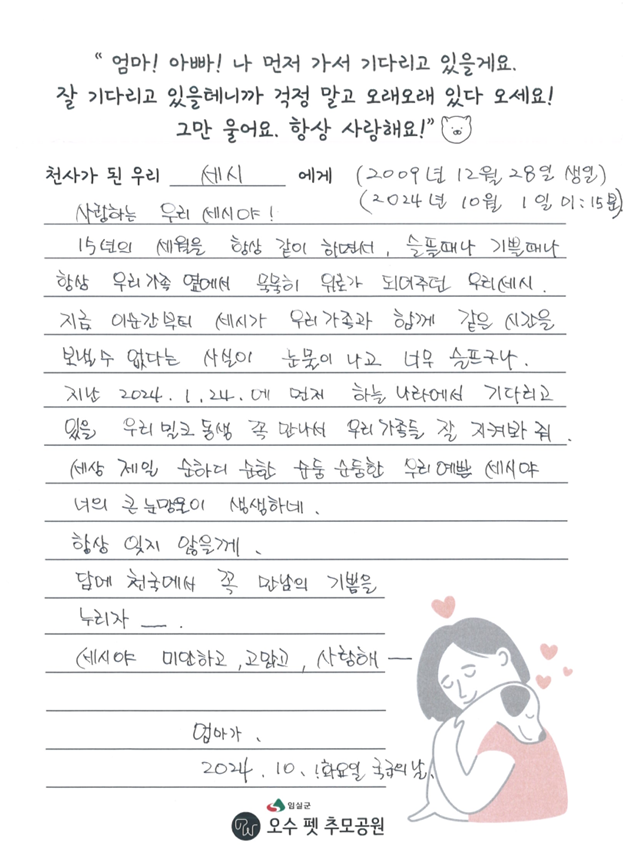 “ 엄마! 아빠! 나 먼저 가서 기다리고 있을게요.
잘 기다리고 있을테니까 걱정 말고 오래오래 있다 오세요!
그만 울어요. 항상 사랑해요!”
천사가 된 우리 세시 에게 (2009년 12월 28일 생일)
(2024년 10월 1일 01:15분)
사랑하는 우리 세시야!
15년의 세월을 항상 같이 하면서, 슬플때나 기쁠때나
항상 우리가족 옆에서 묵묵히 위로가 되어주던 우리세시.
지금 이순간부터 세시가 우리가족과 함께 같은 시간을
보낼수 없다는 사실이 눈물이 나고 너무 슬프구나.
지난 2024.1.24.에 먼저 하늘나라에서 기다리고
있을 우리밀크동생 꼭 만나서 우리가족들 잘 지켜봐 줘.
세상 제일 순하디 순한 순둥순둥한 우리예쁜 세시야
너의 큰눈망울이 생생하네.
항상 잊지 않을께.
담에 천국에서 꼭 만남의 기쁨을
누리자 —.
세시야 미안하고, 고맙고, 사랑해 —
엄마가.
2024.10.1화요일 국군의날.
임실군
오수 펫 추모공원